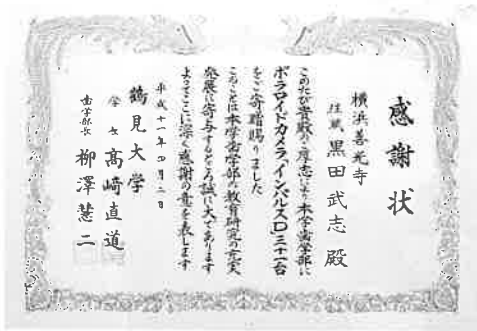 感謝状
横浜善光寺
住職 黒田武志 殿
このたび貴殿の厚志により本学歯学部に
ポラロイドカメラ、インパルスD 三十一台
をご寄贈賜りました
このことは本学歯学部の教育研究の充実
発展に寄与するところ誠に大であります
よってここに深く感謝の意を表します
平成十一年四月二日
鶴見大学
学長 高崎直道
歯学部長 柳澤慧二